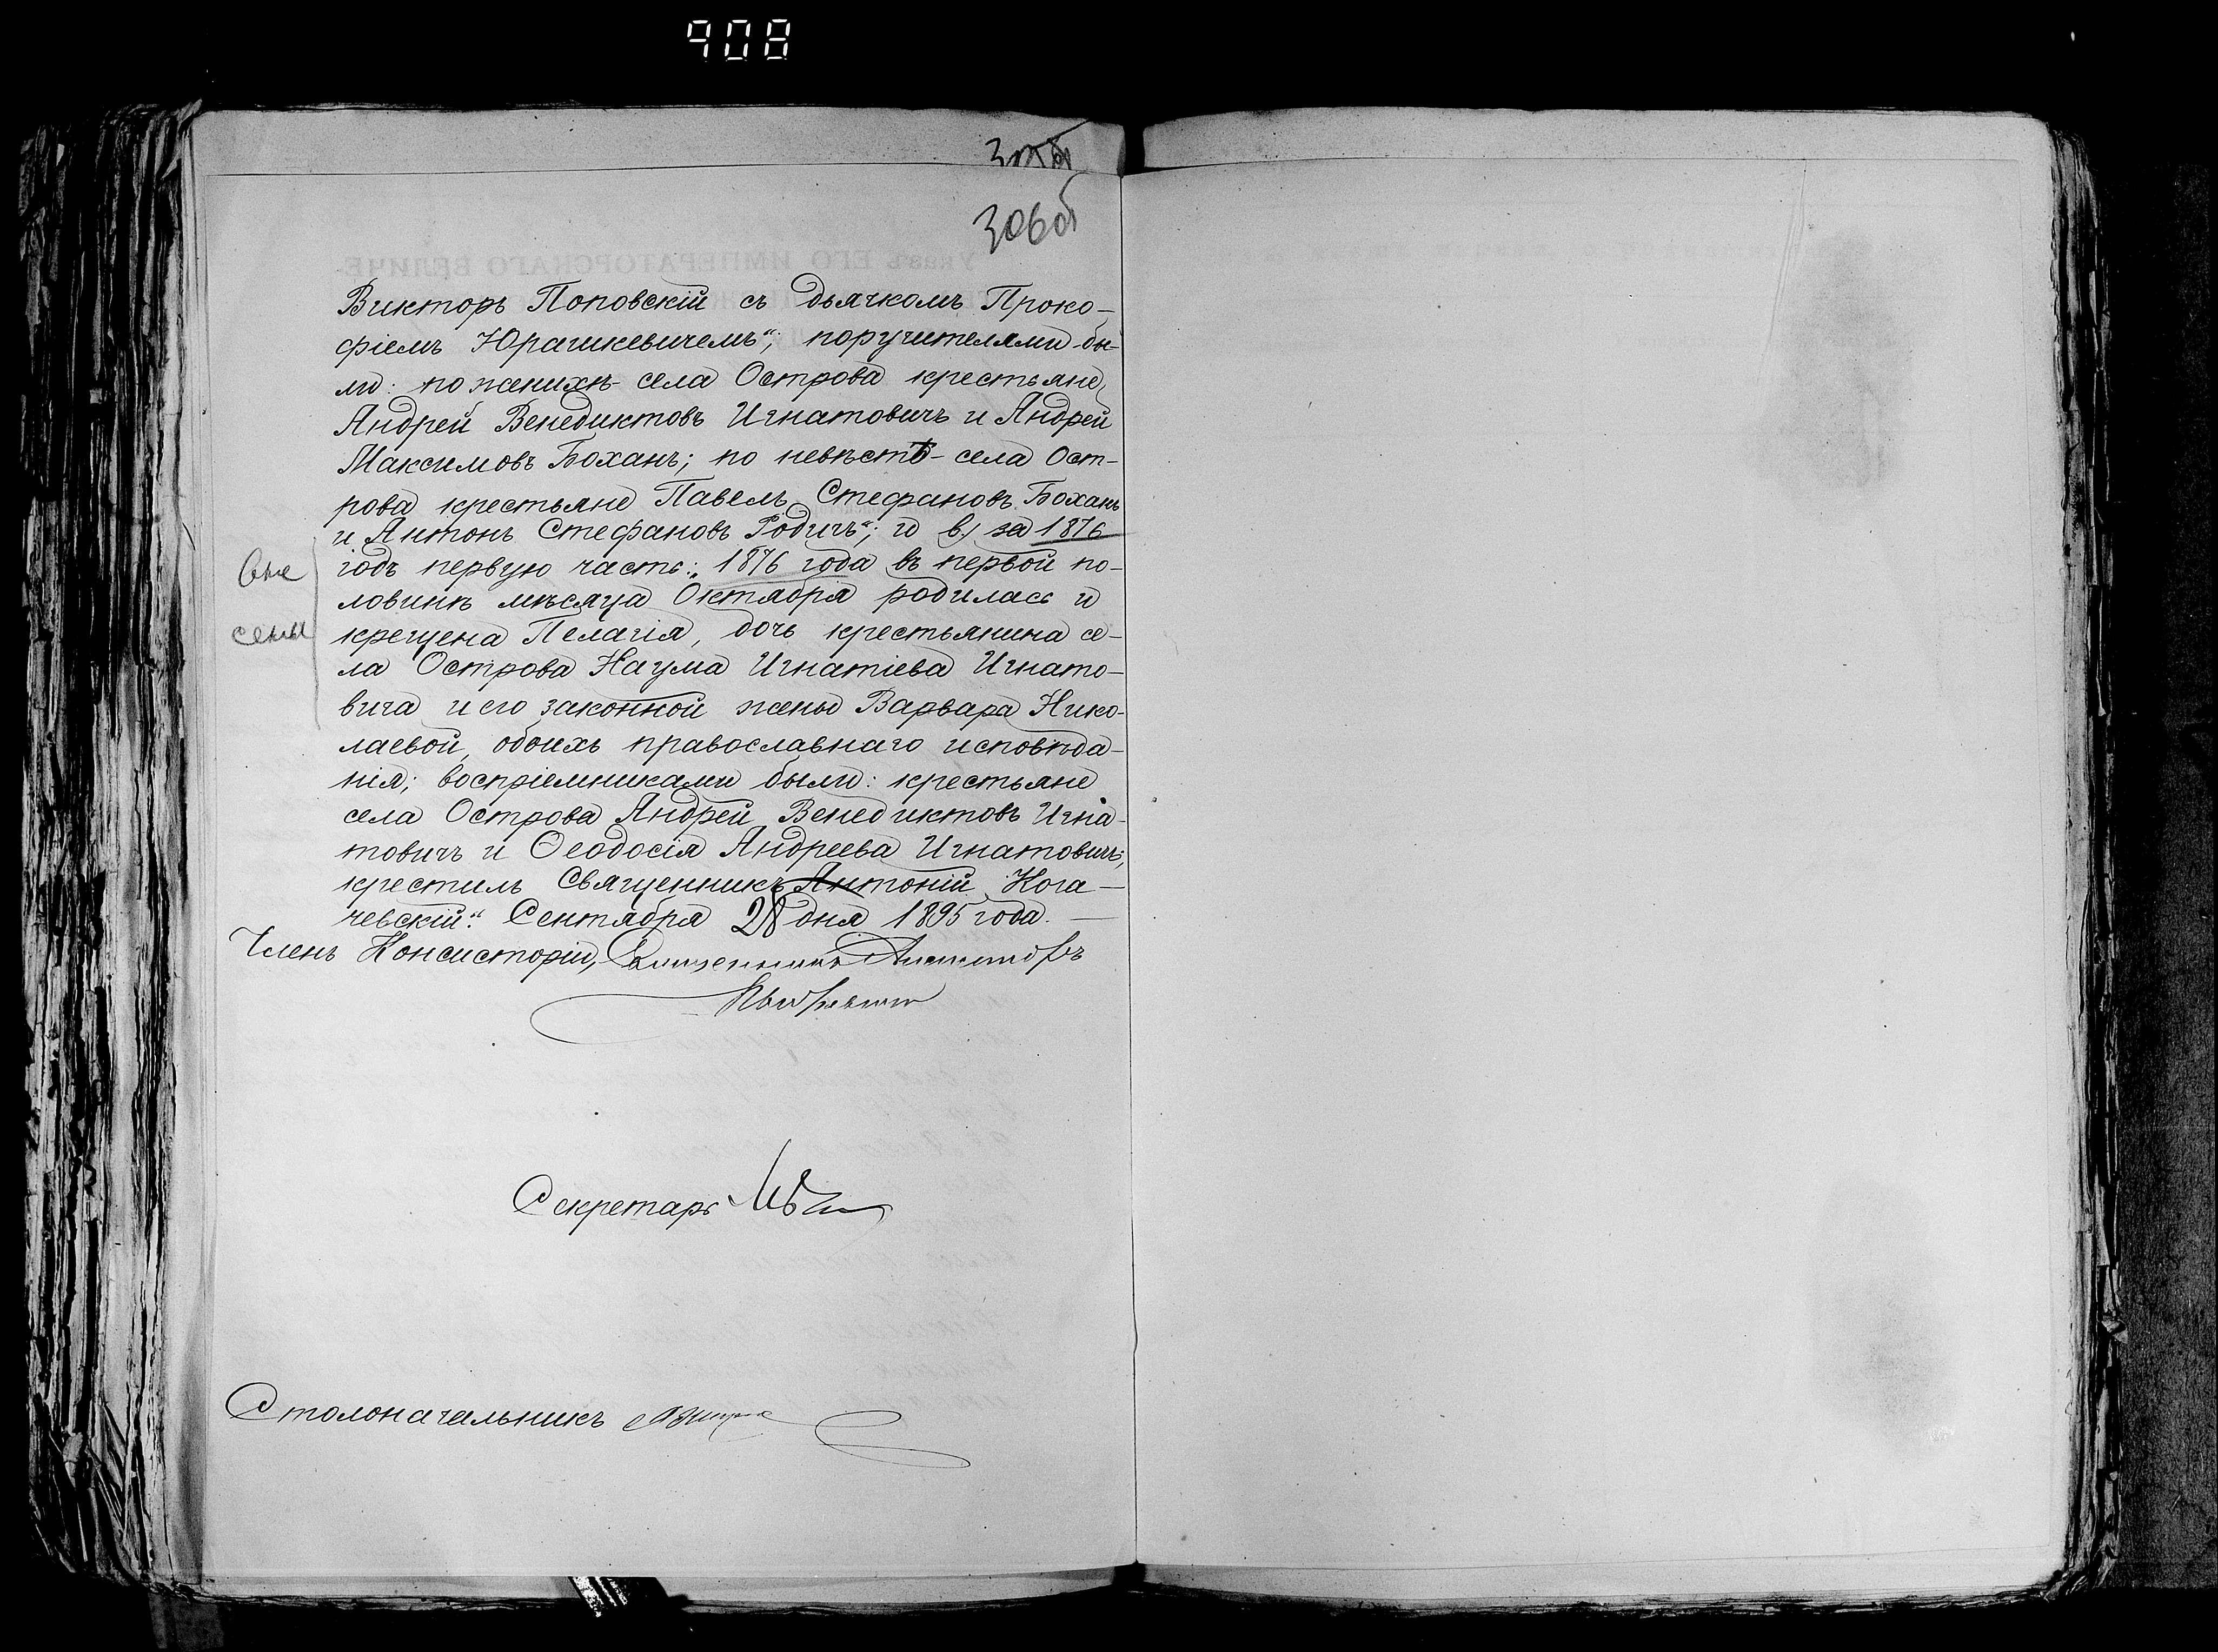 908
306об
Викторъ Поповскій съ дьячкомъ Проко-
фіемъ Юрашкевичемъ“; поручителями бы-
ли: по женихѣ села Острова крестьяне
Андрей Венедиктовъ Игнатовичъ и Андрей
Максимовъ Боханъ; по невѣстѣ - села Ост-
рова крестьяне Павелъ Стефановъ Боханъ
и Антонъ Стефановъ Родичъ“; и в) за 1876
годъ первую часть: „1876 года въ первой по-
ловинѣ мѣсяца Октября родилась и
крещена Пелагія, дочь крестьянина се-
ла Острова Наума Игнатіева Игнато-
вича и его законной жены Варвара Нико-
лаевой, обоихъ православнаго исповѣда-
нія; воспріемниками были: крестьяне
села Острова Андрей Венедиктовъ Игна-
товичъ и Ѳеодосія Андреева Игнатовичъ;
крестилъ Священникъ Антоній Кога-
чевскій“. Сентября 28 дня 1895 года. —
Членъ Консисторіи, Священникъ Александръ
Секретарь
Столоначальникъ